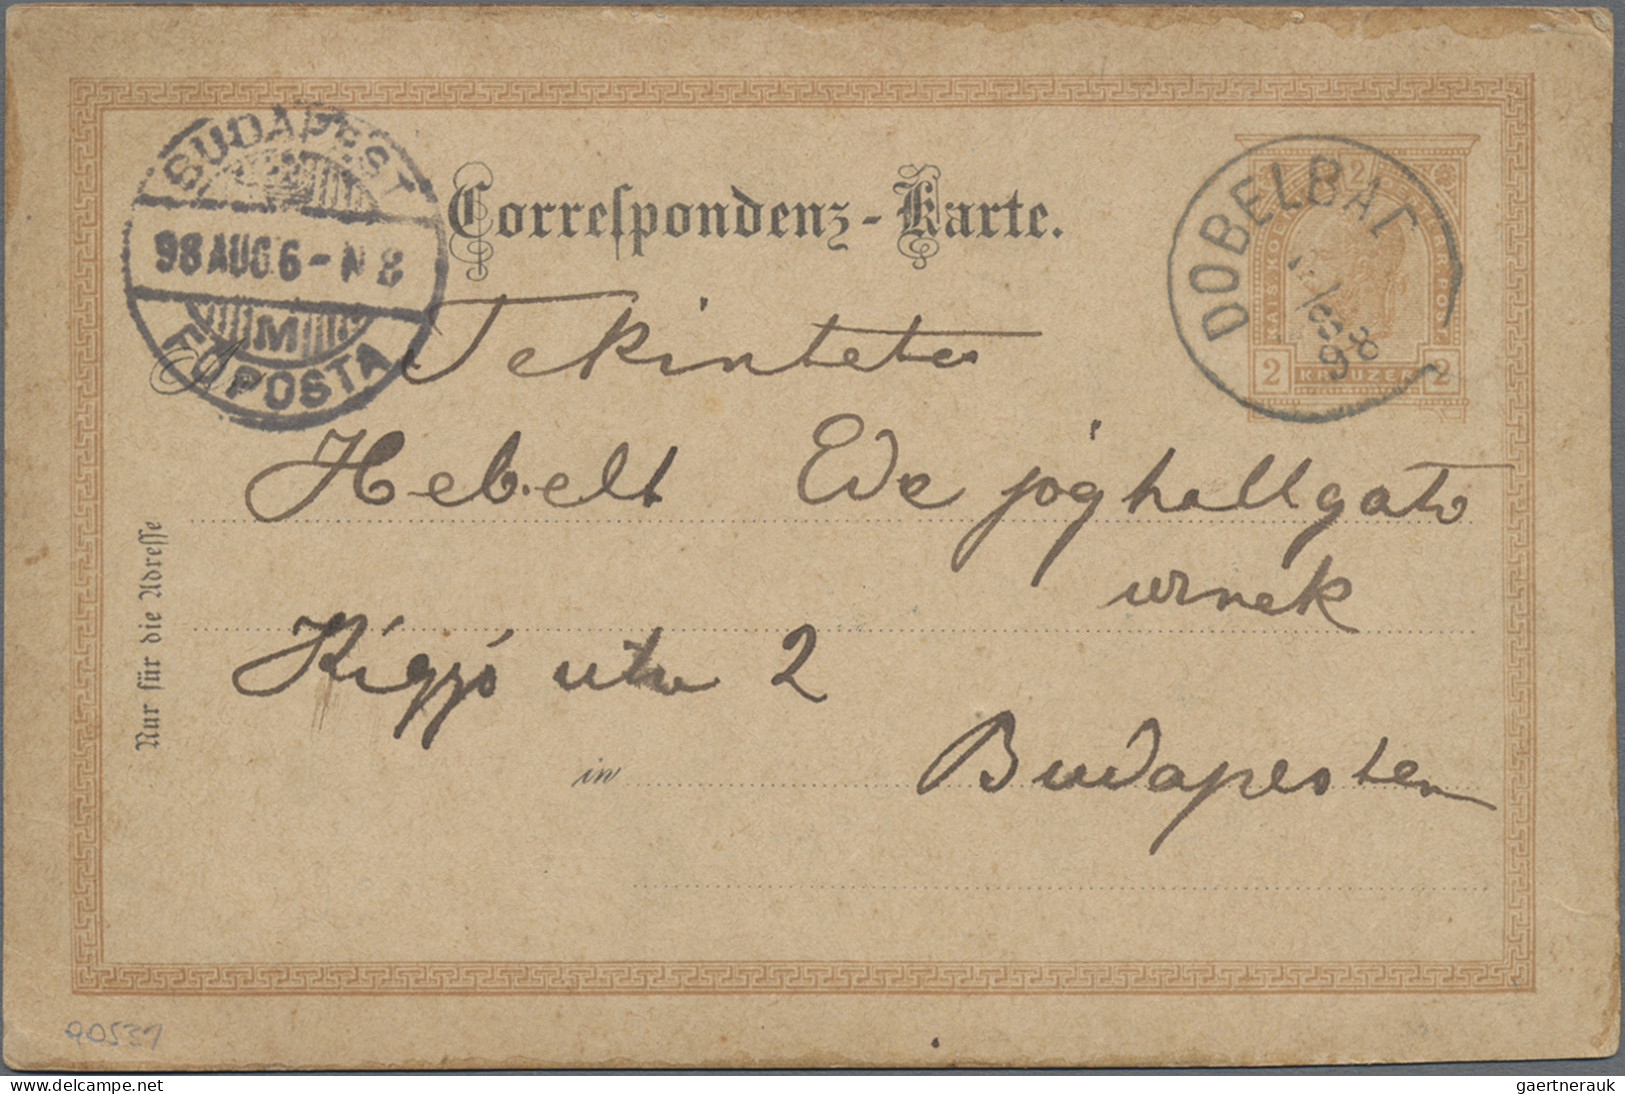 Correspondenz-Karte.
BUDAPEST
98 AUG. 6 - N 8
M
FŐPOSTA
DOBELBAD
98
KAIS. KOE
2
2 KREUZER 2
Tekintetes
Hebelt Ede joghallgató
urnak
Kígyó utca 2
in Budapesten
Nur für die Adresse
90531
gaertnerauk